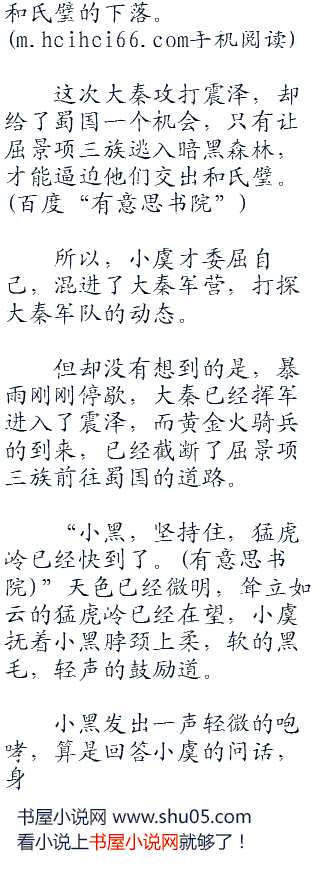 和氏璧的下落。
(m.hcihci66.com手机阅读)
这次大秦攻打震泽，却
给了蜀国一个机会，只有让
屈景项三族逃入暗黑森林，
才能逼迫他们交出和氏璧。
(百度“有意思书院”)
所以，小虞才委屈自
己，混进了大秦军营，打探
大秦军队的动态。
但却没有想到的是，暴
雨刚刚停歇，大秦已经挥军
进入了震泽，而黄金火骑兵
的到来，已经截断了屈景项
三族前往蜀国的道路。
“小黑，坚持住，猛虎
岭已经快到了。(有意思书
院)”天色已经微明，耸立如
云的猛虎岭已经在望，小虞
抚着小黑脖颈上柔，软的黑
毛，轻声的鼓励道。
小黑发出一声轻微的咆
哮，算是回答小虞的问话，
身
书屋小说网 www.shu05.com
看小说上书屋小说网就够了！